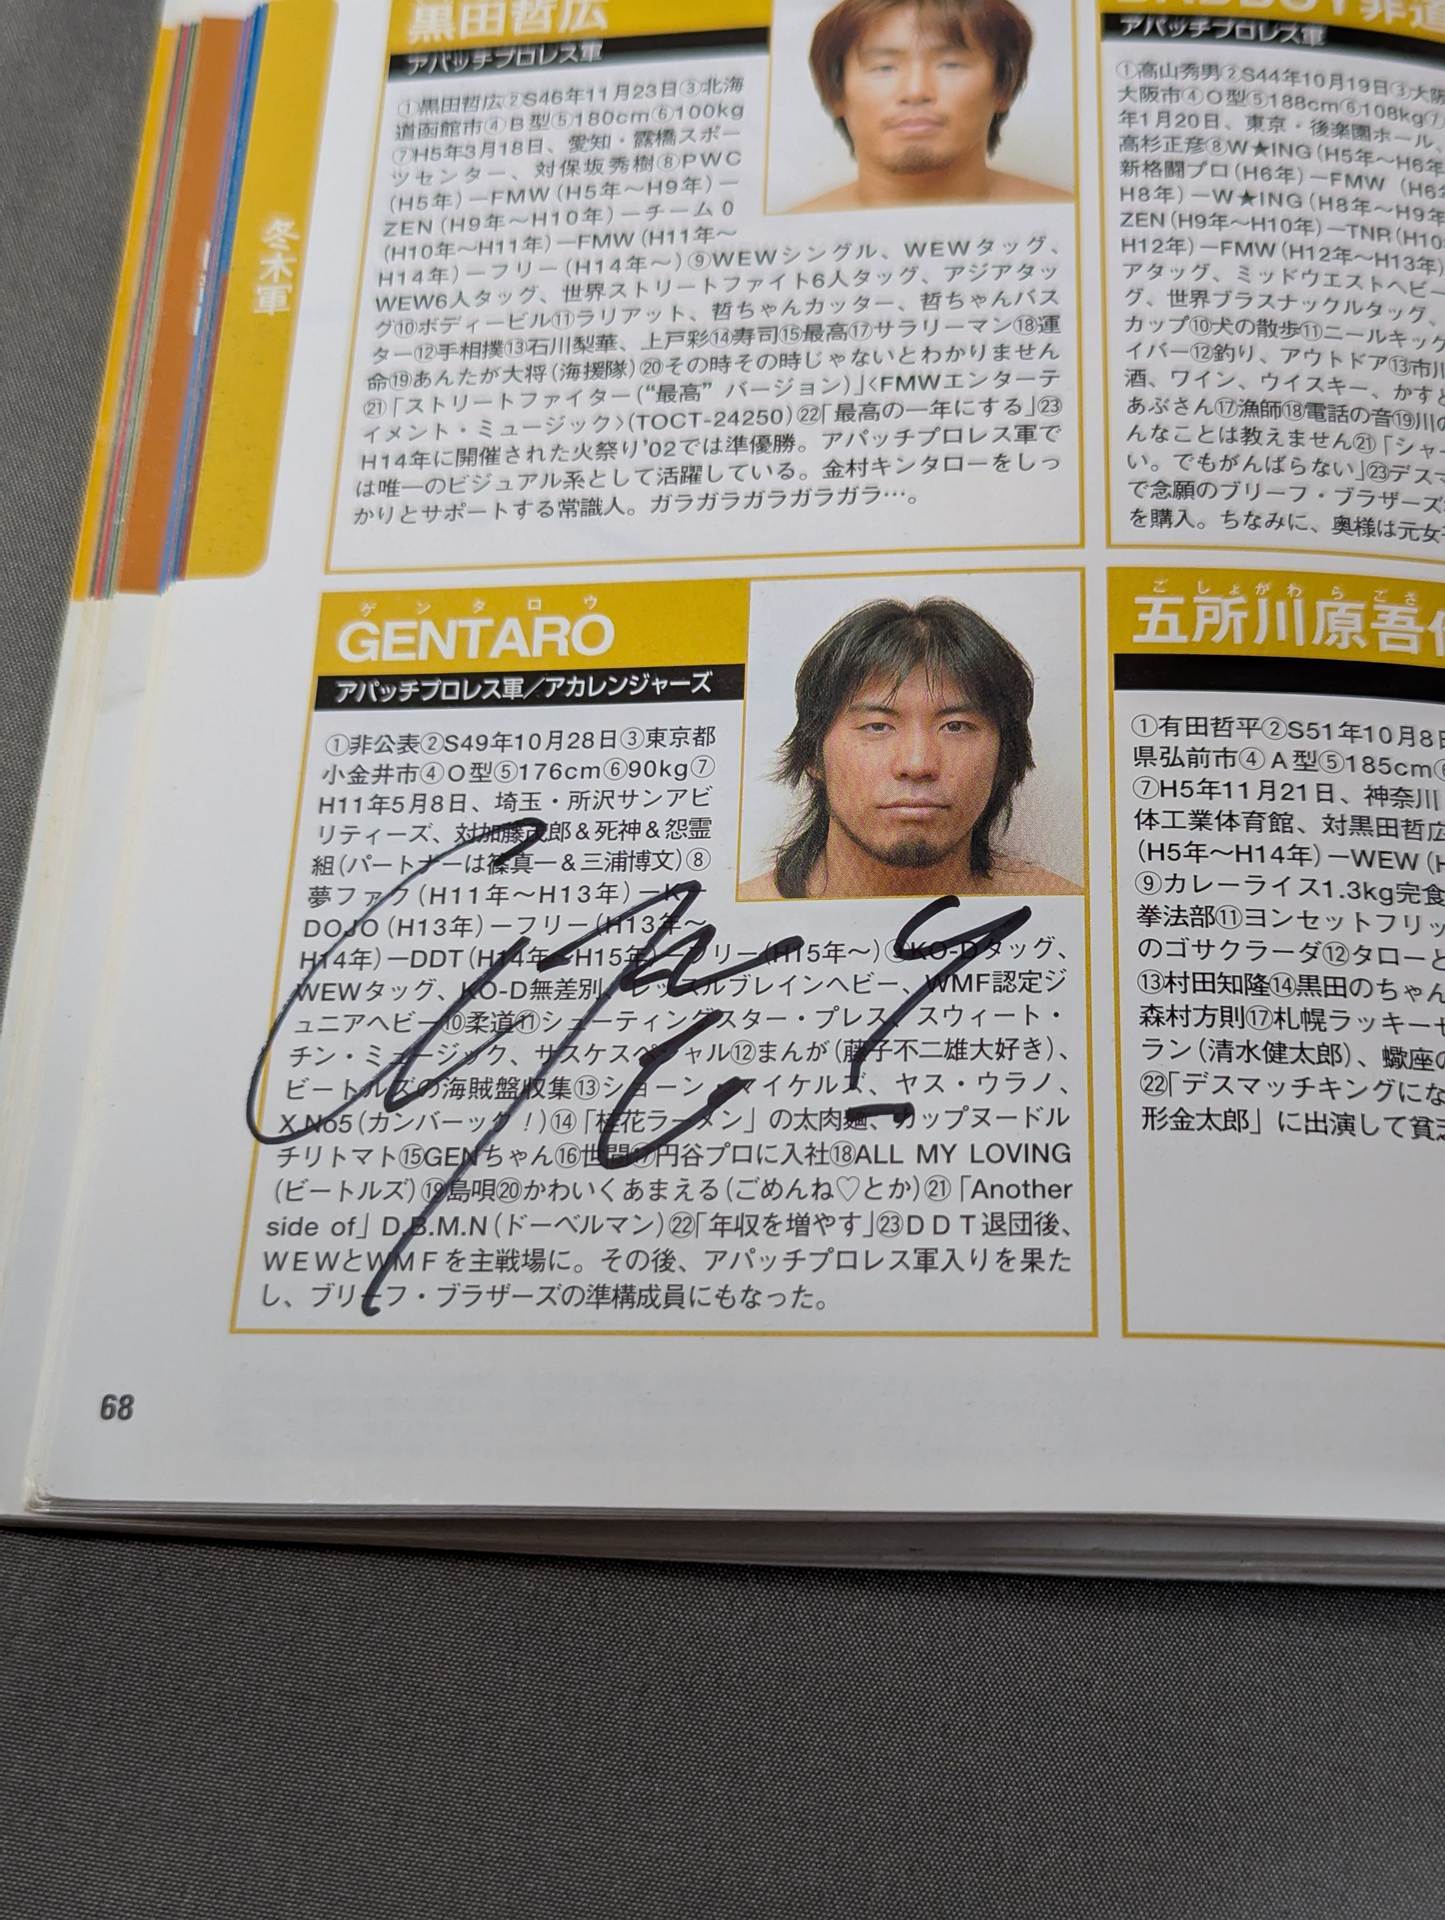 冬木軍
黒田哲広
アパッチプロレス軍
①黒田哲広②S46年11月23日③北海
道函館市④B型⑤180cm⑥100kg
⑦H5年3月18日、愛知・露橋スポー
ツセンター、対保坂秀樹⑧PWC
(H5年)―FMW(H5年～H9年)―
ZEN(H9年～H10年)―チーム0
(H10年～H11年)―FMW(H11年～
H14年)―フリー(H14年～)⑨WEWシングル、WEWタッグ、
WEW6人タッグ、世界ストリートファイト6人タッグ、アジアタッ
グ⑩ボディービル⑪ラリアット、哲ちゃんカッター、哲ちゃんバス
ター⑫手相撲⑬石川梨華、上戸彩⑭寿司⑮最高⑰サラリーマン⑱運
命⑲あんたが大将(海援隊)⑳その時その時じゃないとわかりません
㉑「ストリートファイター(“最高”バージョン)」<FMWエンターテ
イメント・ミュージック>(TOCT-24250)㉒「最高の一年にする」㉓
H14年に開催された火祭り'02では準優勝。アパッチプロレス軍で
は唯一のビジュアル系として活躍している。金村キンタローをしっ
かりとサポートする常識人。ガラガラガラガラガラ…。
アパッチプロレス軍
①高山秀男②S44年10月19日③大阪
大阪市④O型⑤188cm⑥108kg⑦
年1月20日、東京・後楽園ホール、
高杉正彦⑧W★ING(H5年～H6年
新格闘プロ(H6年)―FMW(H6年
H8年)―W★ING(H8年～H9年
ZEN(H9年～H10年)―TNR(H10
H12年)―FMW(H12年～H13年)
アタッグ、ミッドウエストヘビー
グ、世界ブラスナックルタッグ、
カップ⑩犬の散歩⑪ニールキック
イバー⑫釣り、アウトドア⑬市川
酒、ワイン、ウイスキー、かすと
あぶさん⑰漁師⑱電話の音⑲川の
んなことは教えません㉑「シャー
い。でもがんばらない」㉓デスマ
で念願のブリーフ・ブラザーズ
を購入。ちなみに、奥様は元女子
ゲンタロウ
GENTARO
アパッチプロレス軍／アカレンジャーズ
①非公表②S49年10月28日③東京都
小金井市④O型⑤176cm⑥90kg⑦
H11年5月8日、埼玉・所沢サンアビ
リティーズ、対加藤太郎＆死神＆怨霊
組(パートナーは篠真一＆三浦博文)⑧
夢ファク(H11年～H13年)―K―
DOJO(H13年)―フリー(H13年～
H14年)―DDT(H14年～H15年)―フリー(H15年～)⑨KO-Dタッグ、
WEWタッグ、KO-D無差別、レッスルブレインヘビー、WMF認定ジ
ュニアヘビー⑩柔道⑪シューティングスター・プレス、スウィート・
チン・ミュージック、サスケスペシャル⑫まんが(藤子不二雄大好き)、
ビートルズの海賊盤収集⑬ショーン・マイケルズ、ヤス・ウラノ、
X.No5(カンバーック！)⑭「桂花ラーメン」の太肉麺、カップヌードル
チリトマト⑮GENちゃん⑯世間⑰円谷プロに入社⑱ALL MY LOVING
(ビートルズ)⑲島唄⑳かわいくあまえる(ごめんね♡とか)㉑「Another
side of」D.B.M.N(ドーベルマン)㉒「年収を増やす」㉓DDT退団後、
WEWとWMFを主戦場に。その後、アパッチプロレス軍入りを果た
し、ブリーフ・ブラザーズの準構成員にもなった。
ごしょがわらごさ
五所川原吾
①有田哲平②S51年10月8日
県弘前市④A型⑤185cm⑥
⑦H5年11月21日、神奈川
体工業体育館、対黒田哲広
(H5年～H14年)―WEW(H
⑨カレーライス1.3kg完食
拳法部⑪ヨンセットフリッ
のゴサクラーダ⑫タローと
⑬村田知隆⑭黒田のちゃん
森村方則⑰札幌ラッキーセ
ラン(清水健太郎)、蠍座の
㉒「デスマッチキングにな
形金太郎」に出演して貧乏
68